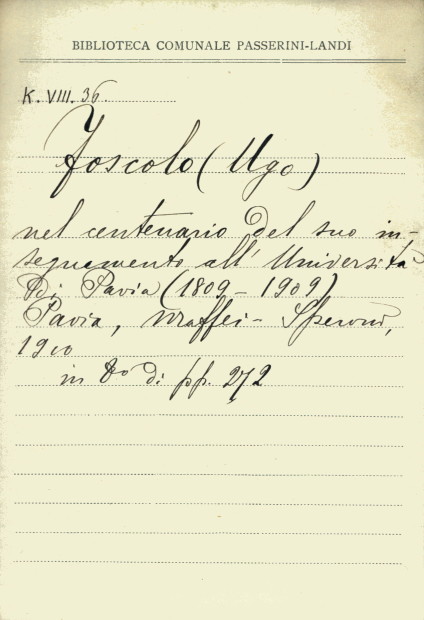 BIBLIOTECA COMUNALE PASSERINI-LANDI
K. VIII. 36.
Foscolo (Ugo)
nel centenario del suo in-
segnamento all' Università
di Pavia (1809 - 1909)
Pavia, Maffei - Speroni,
1910
in 8o di pp. 272